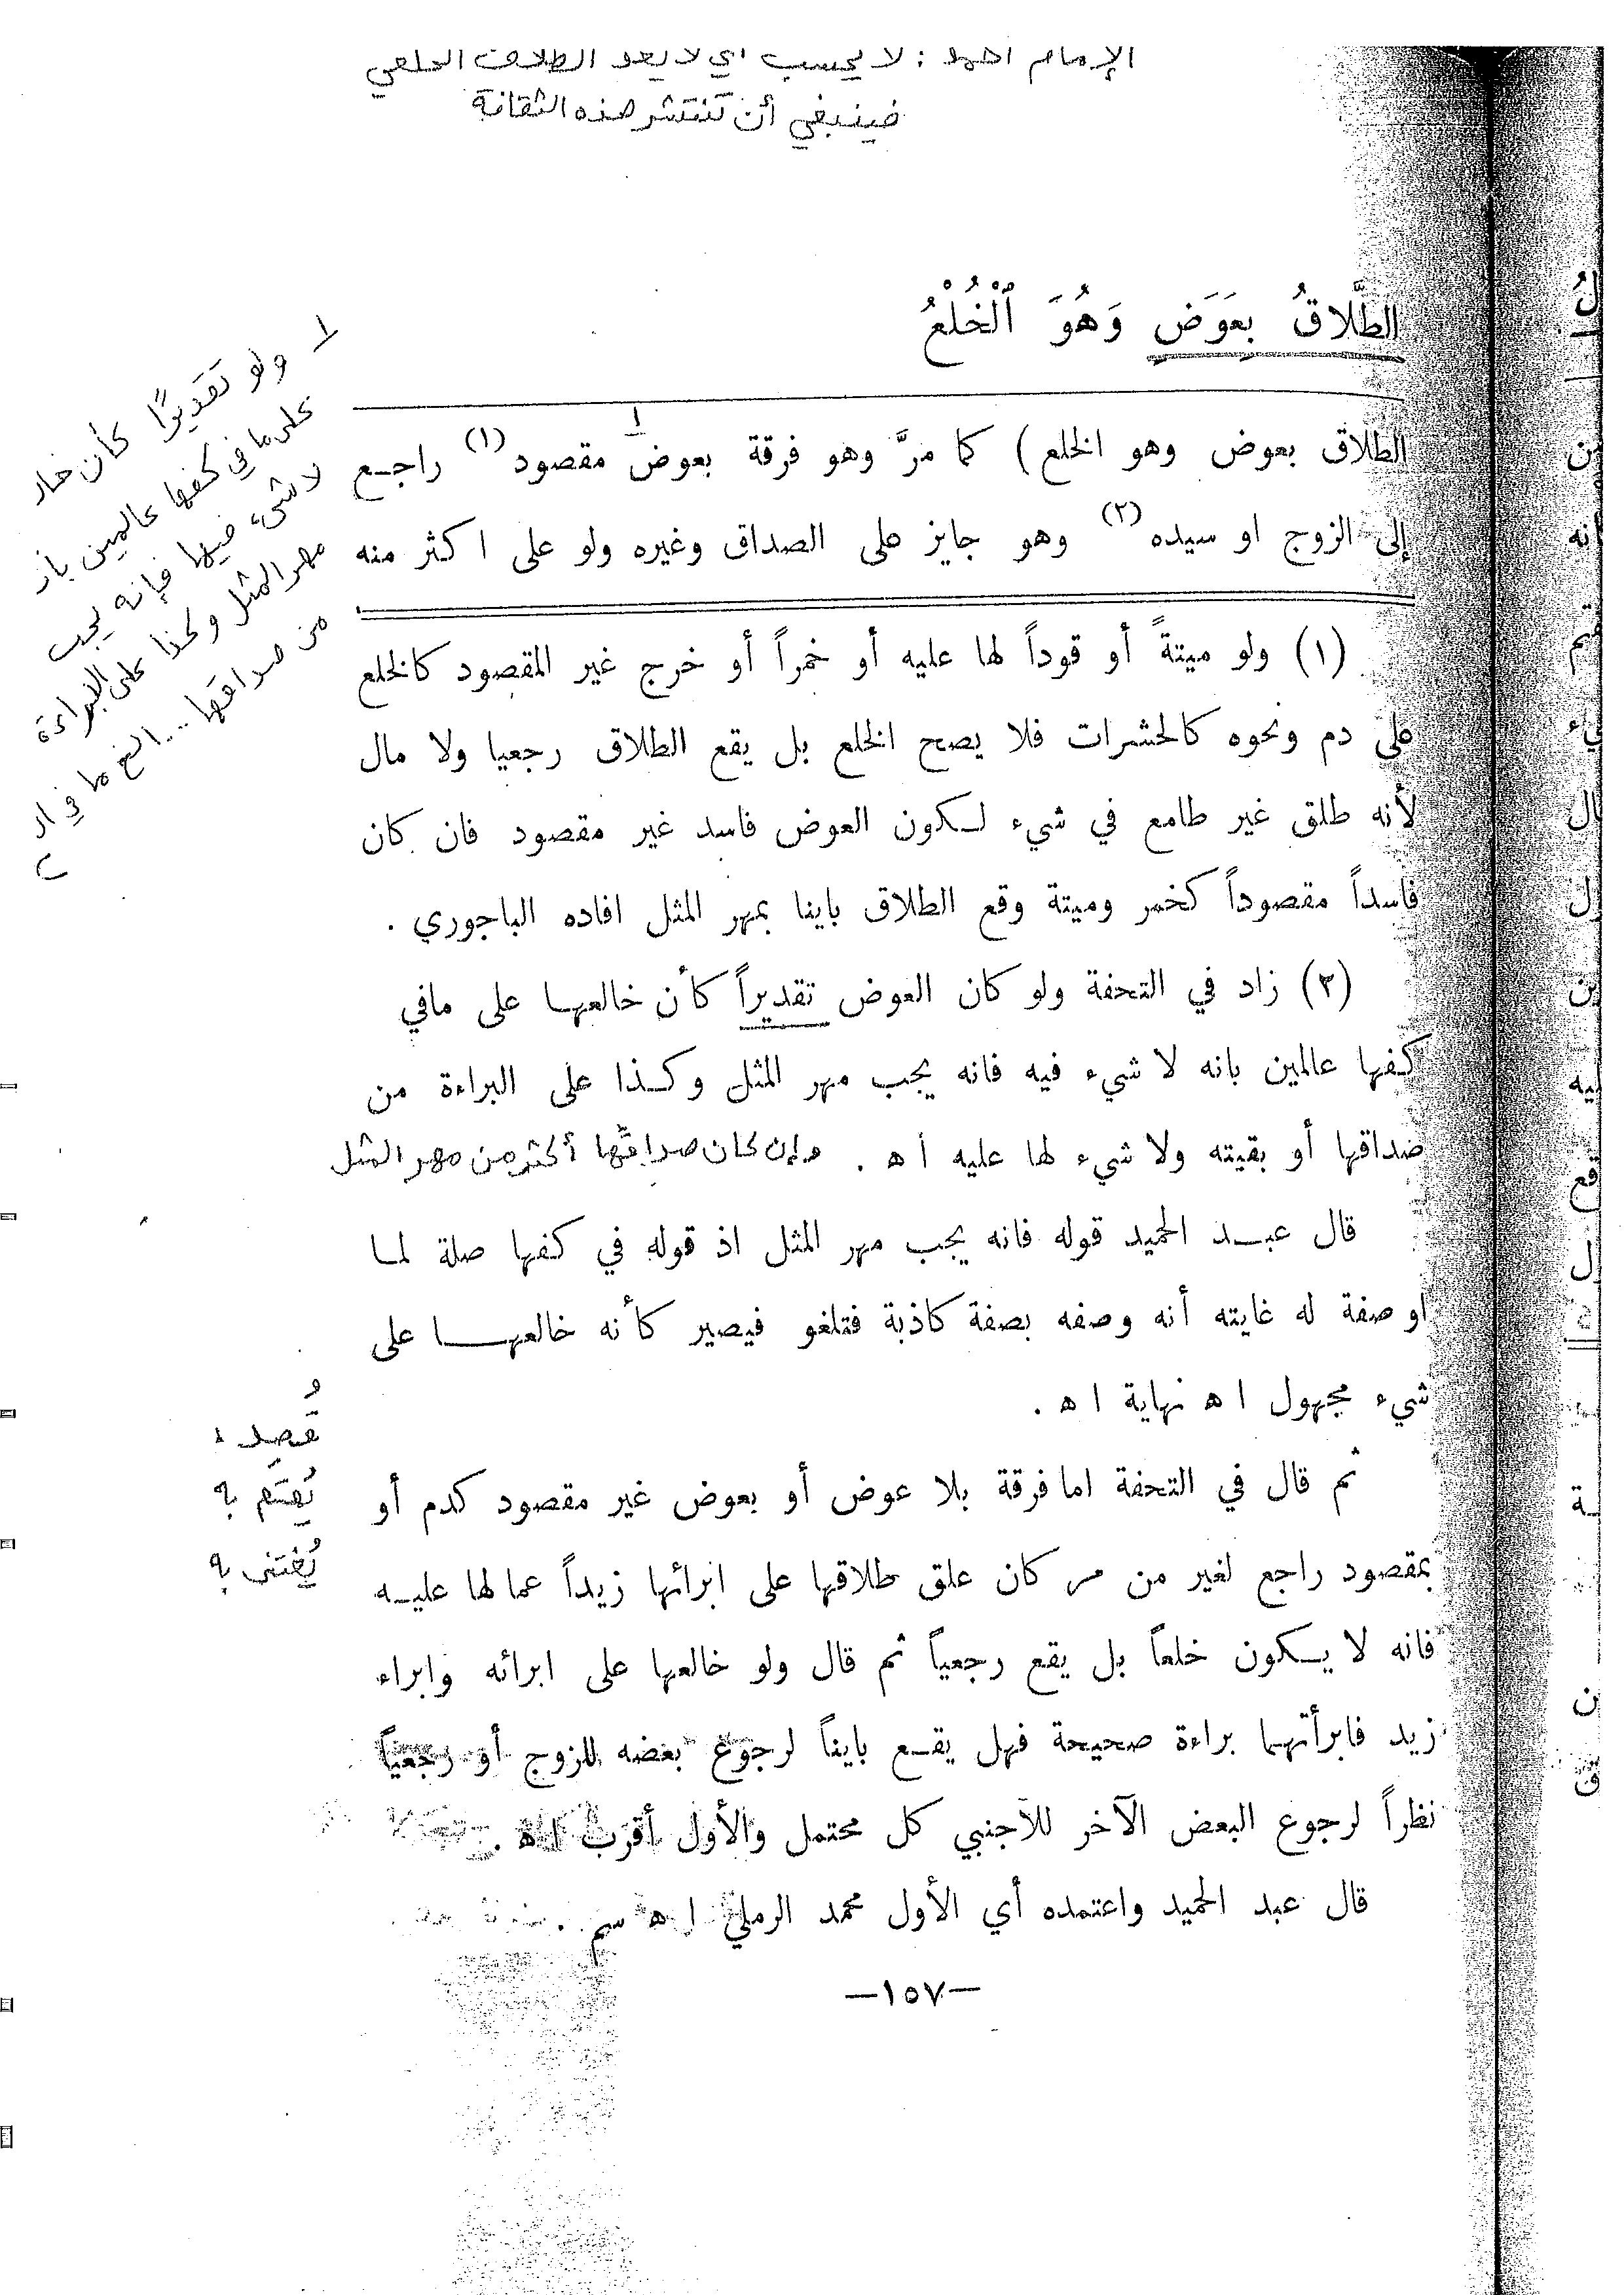 الإمام احمد : لا يحسب اي لا يعد الطلاق الخلعي
فينبغي أن تنتشر هذه الثقافة
الطَّلَاقُ بِعَوَضٍ وَهُوَ ٱلْخُلْعُ
الطلاق بعوض وهو الخلع ) كما مرَّ وهو فرقة بعوض مقصود (١) راجع
إلى الزوج او سيده (٢) وهو جايز على الصداق وغيره ولو على اكثر منه
١ ولو تقديرًا كأن خالـ
على ما في كفها عالمين بأنـ
لا شيء فيها فإنه يجب
مهر المثل وكذا على البراءة
من صداقها ... الخ ما في الـ
(١) ولو ميتةً أو قوداً لها عليه أو خمراً أو خرج غير المقصود كالخلع
على دم ونحوه كالحشرات فلا يصح الخلع بل يقع الطلاق رجعيا ولا مال
لأنه طلق غير طامع في شيء لكون العوض فاسد غير مقصود فان كان
فاسداً مقصوداً كخمر وميتة وقع الطلاق باينا بمهر المثل افاده الباجوري .
(٢) زاد في التحفة ولو كان العوض تقديراً كأن خالعها على مافي
كفها عالمين بانه لا شيء فيه فانه يجب مهر المثل وكذا على البراءة من
صداقها أو بقيته ولا شيء لها عليه ا ه . وإن كان صداقها أكثر من مهر المثل
قال عبد الحميد قوله فانه يجب مهر المثل اذ قوله في كفها صلة لما
او صفة له غايته أنه وصفه بصفة كاذبة فتلغو فيصير كأنه خالعها على
شيء مجهول ا ه نهاية ا ه .
ثم قال في التحفة اما فرقة بلا عوض أو بعوض غير مقصود كدم أو
بمقصود راجع لغير من مر كان علق طلاقها على ابرائها زيداً عما لها عليه
فانه لا يكون خلعاً بل يقع رجعياً ثم قال ولو خالعها على ابرائه وابراء
زيد فابرأتهما براءة صحيحة فهل يقع بايناً لرجوع بعضه للزوج أو رجعياً
نظراً لرجوع البعض الآخر للاجنبي كل محتمل والأول أقرب ا ه .
قال عبد الحميد واعتمده أي الأول محمد الرملي ا ه سم .
يُهتم به
يُعتنى به
—١٥٧—